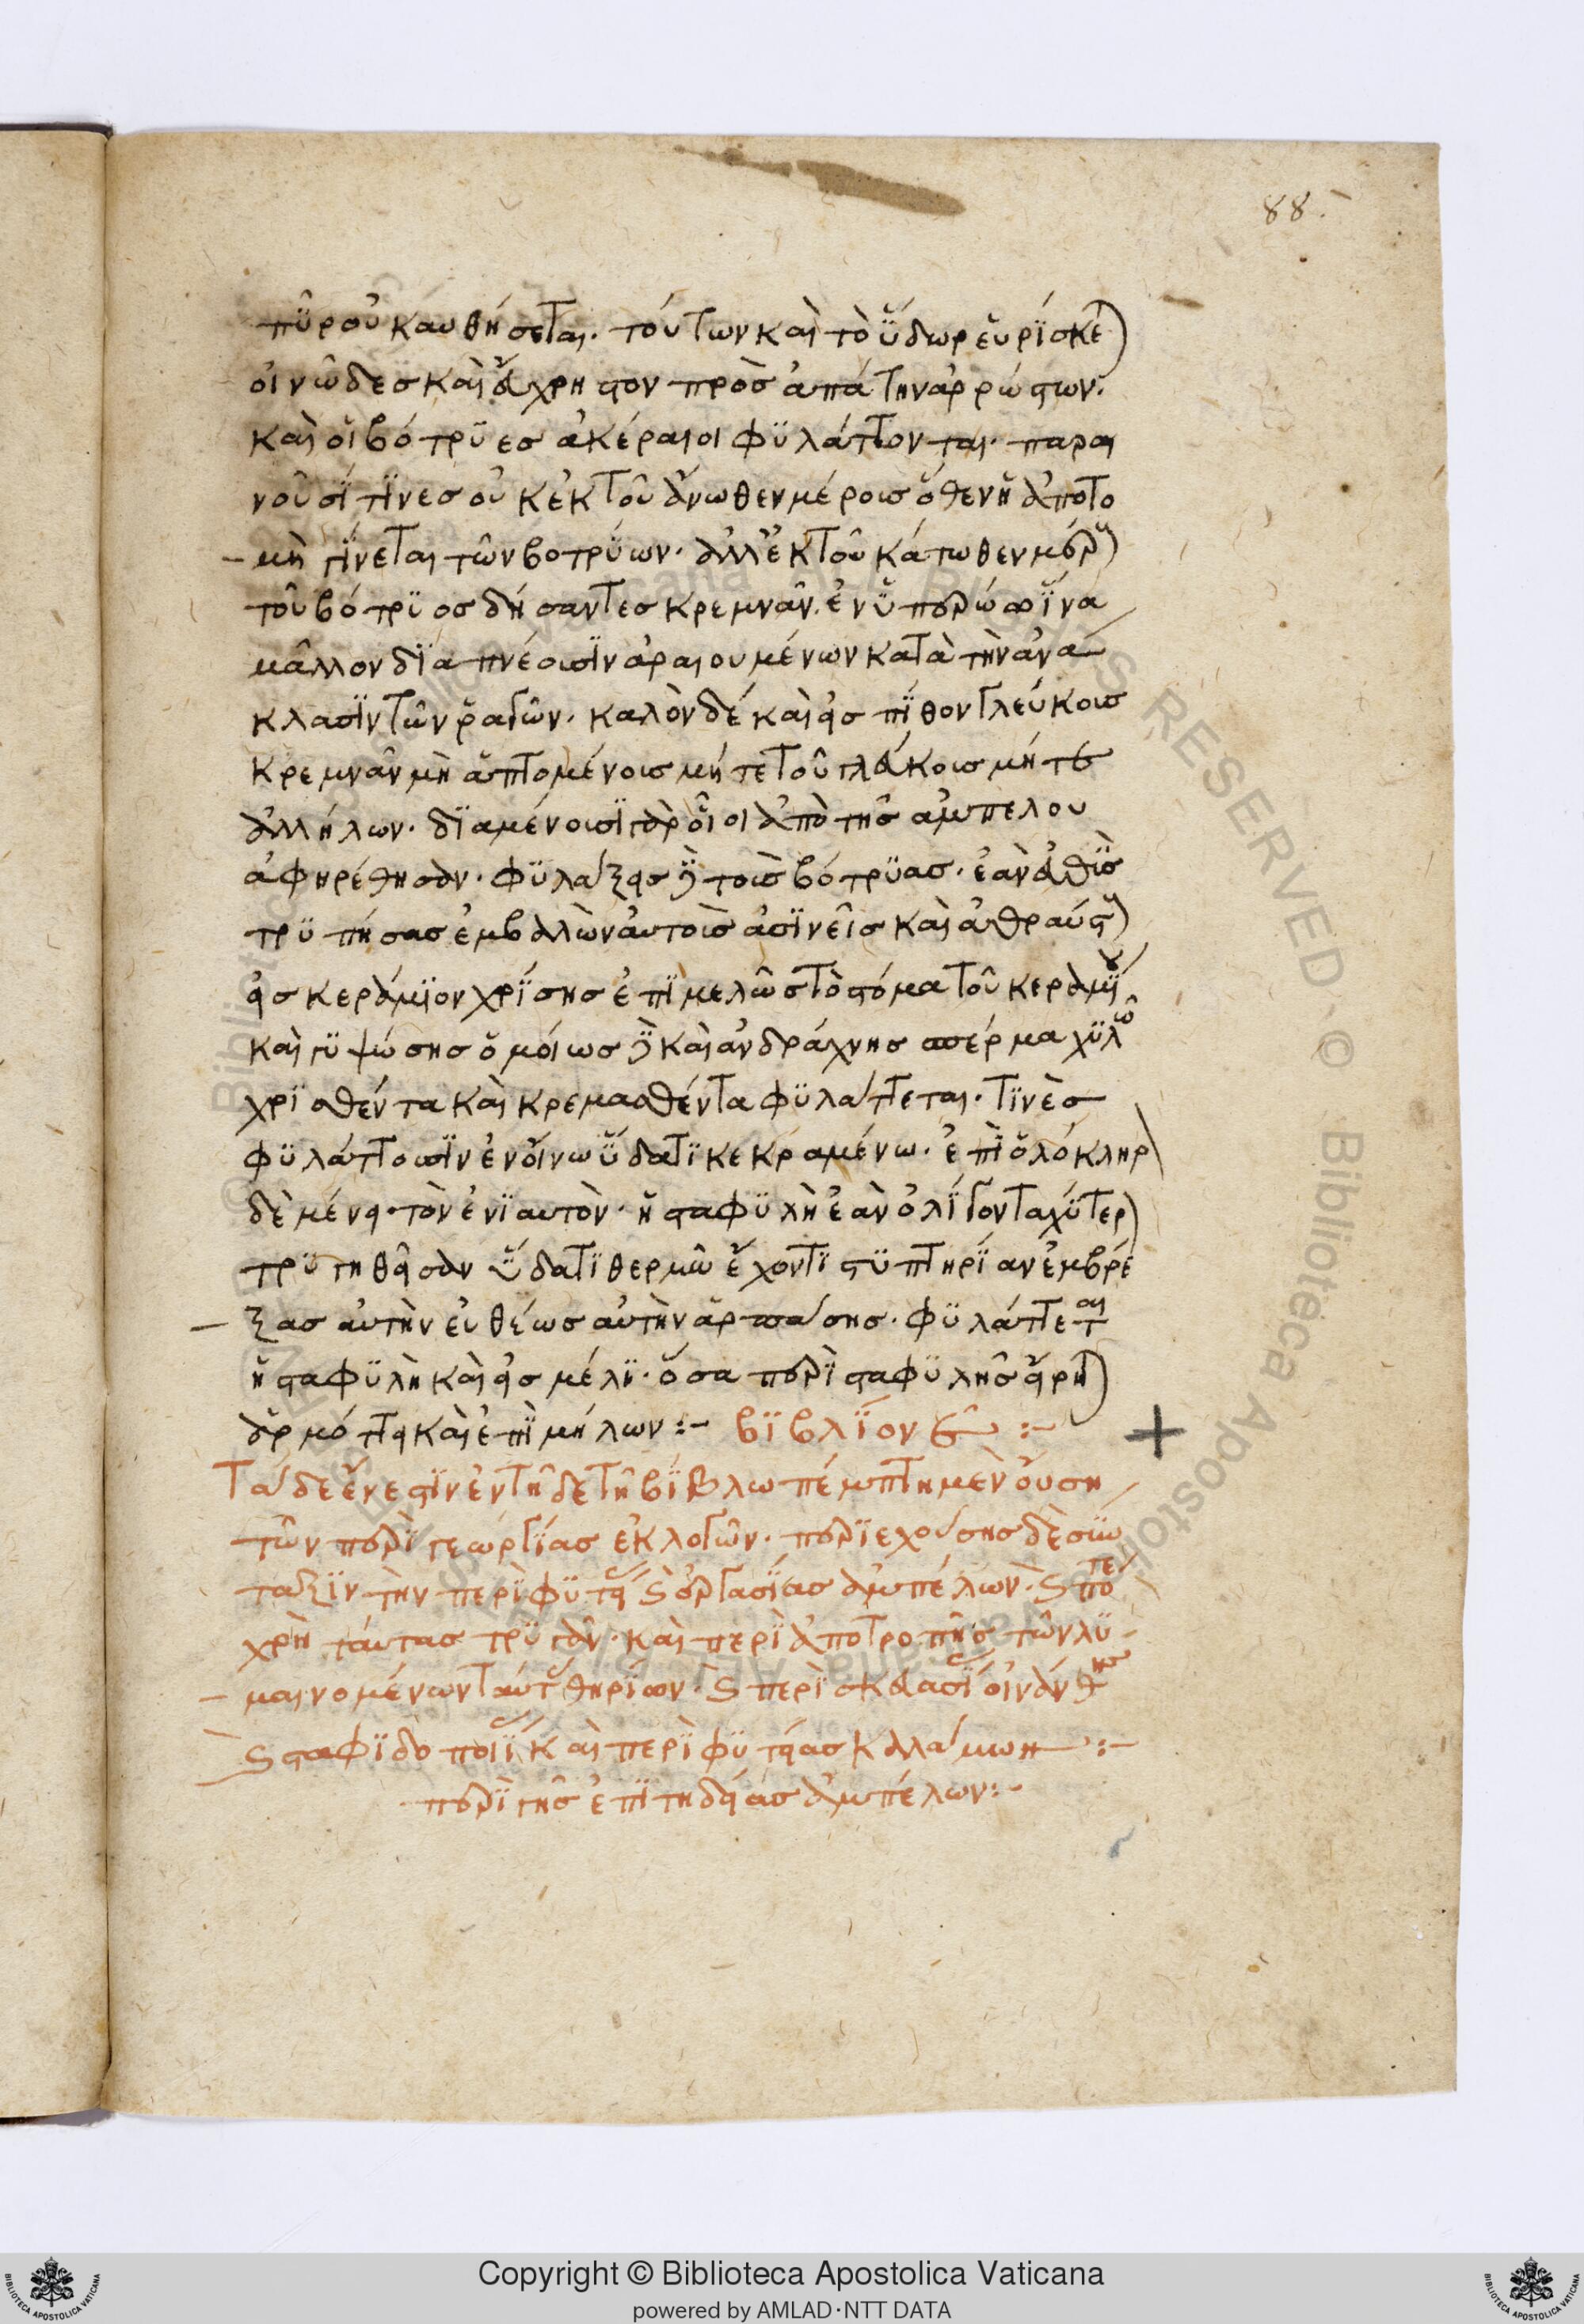 88.
πϋροῦ καυθήσεται. τούτων καὶ τὸ ὕδωρ εὑρίσκε
οἰνῶδεσ καὶ ἄχρηστον πρὸσ ἀπάτην ἀρρώστων.
καὶ οἱ βότρϋεσ ἀκέραιοι φϋλάττονται. παραι
νοῦσί τϊνεσ οὐκ ἐκ τοῦ ἄνωθεν μέρουσ ὅθεν ἡ ἀποτο
μὴ γίνεται τῶν βοτρύων. ἀλλ' ἐκ τοῦ κάτωθεν μέρ
τοῦ βότρϋοσ δήσαντεσ κρεμνᾶν. ἐν ὑπερώω ἵνα
μᾶλλον δϊαπνέουσϊν ἀραιουμένων κατὰ τὴν ἀνά
κλασϊν τῶν ῥαγῶν. καλὸν δέ καὶ εἰσ πίθον γλεύκουσ
κρεμνᾶν μὴ ἁπτομένουσ μήτε τοῦ γλεύκουσ μήτε
ἀλλήλων. δϊαμένουσϊ γὰρ οἷοι ἀπὸ τῆσ ἀμπελου
ἀφηρέθησαν. φϋλάξεισ τοὺσ βότρϋασ. ἐὰν εὐθὺσ
τρϋγήσασ ἐμβαλὼν αὐτοὺσ ἀσϊνεῖσ καὶ ἀθραύστ
εἰσ κεράμϊον χρίσησ ἐπϊμελῶσ τὸ στόμα τοῦ κεραμίου
καὶ γϋψώσησ ὁμοίωσ καὶ ἀνδράχνησ σπέρμα χϋλῶ
χρϊσθέντα καὶ κρεμασθέντα φϋλάττεται. τϊνὲσ
φϋλάττουσϊν ἐν οἴνω ὕδατϊ κεκραμένω. ἐπϊ ὁλόκληρ
δὲ μένει. τὸν ἐνϊαυτὸν. ἡ σταφϋλὴ ἐὰν ὀλίγον ταχύτερ
τρϋγηθεῖσαν ὕδατϊ θερμῶ ἔχοντϊ στϋπτηρίαν ἐμβρέ
ξασ αὐτὴν εὐθέωσ αὐτὴν ἁρπάσησ. φϋλάττεται
ἡ σταφϋλὴ καὶ εἰσ μέλϊ. ὅσα περὶ σταφϋλῆσ εἴρη
ἁρμόττει καὶ ἐπϊ μήλων :-  βϊβλίον ε :-
Τάδε ἔνεστϊν ἐν τῆδε τῆ βίβλω πέμπτη μὲν οὔση
τῶν περὶ γεωργίασ ἐκλογῶν. περϊεχούσησ δὲ σύν
ταξϊν τὴν περὶ φϋτείας καὶ ἐργασίασ ἀμπέλων. καὶ πότε
χρὴ ταύτασ τρϋγᾶν. καὶ περὶ ἀποτροπῆσ τῶν λϋ
μαινομένων ταύτ θηρίων. καὶ περὶ σκευασί οἰνάνθησ
καὶ σταφϊδοποιΐ καὶ περὶ φϋτείασ καλάμων :-
περὶ τῆσ ἐπϊτηδείασ ἀμπέλων :-
Copyright © Biblioteca Apostolica Vaticana
powered by AMLAD·NTT DATA